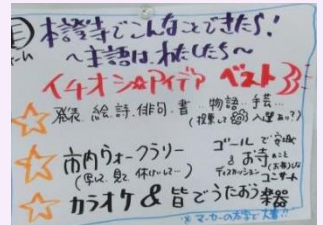 本證寺でこんなことできたら!
〜主語は、わたしたち〜
イチオシ☆アイデア ベスト3
発表、絵、詩、俳句、書…物語…手芸…
(授業し 入選あり?)
市内ウォークラリー
(写して、見て、体けいして…)
ゴールで交流
& お寺のこと
ディスカッション コンサート
カラオケ & 皆でうたおう 楽器
※マーカーの太字で大書!!